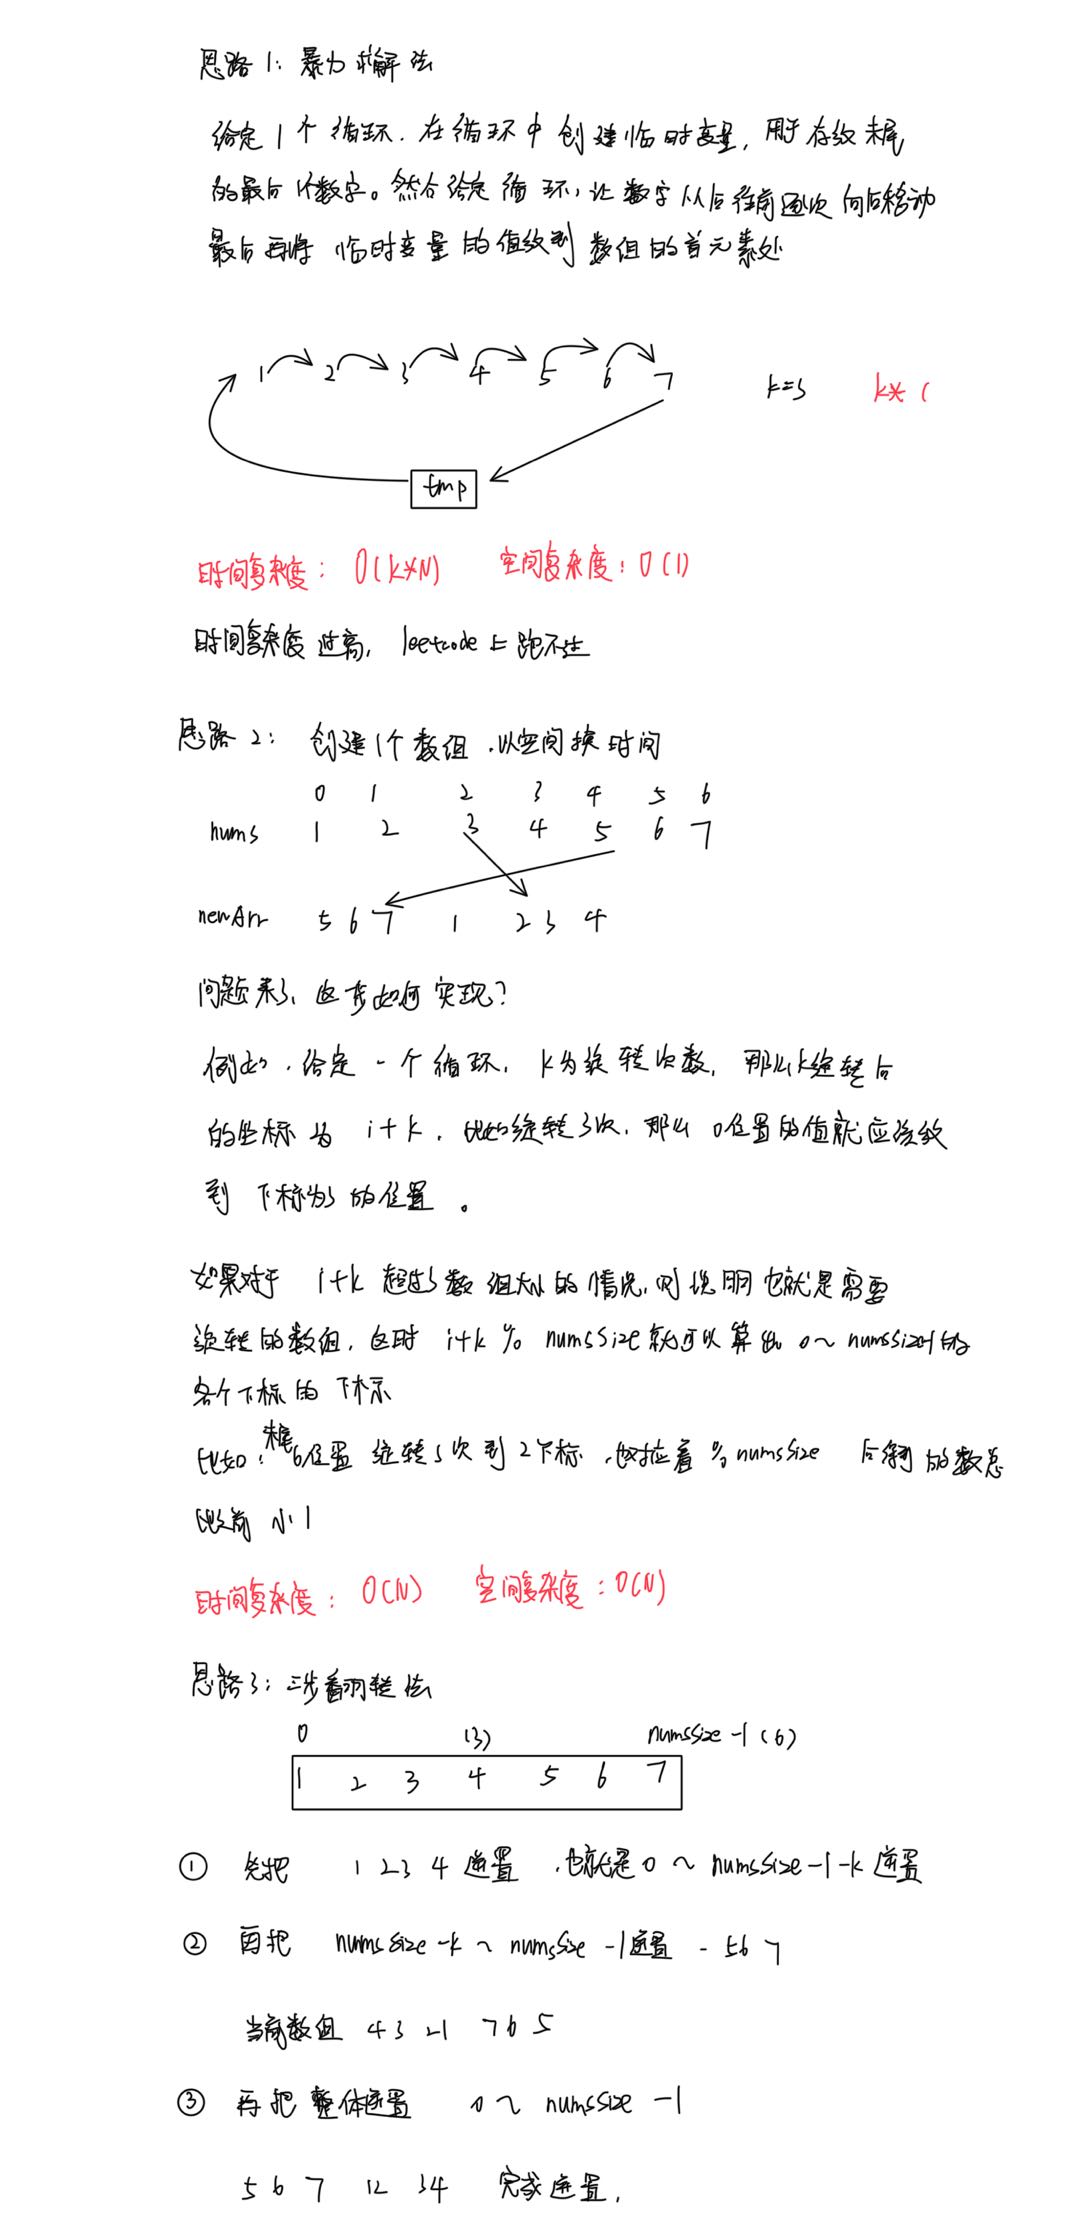 思路1: 暴力求解法
给定1个循环. 在循环中创建临时变量, 用于存放末尾
的最后1个数字。然后给定循环, 让数字从后往前逐次向后移动
最后再将 临时变量的值放到数组的首元素处
1 2 3 4 5 6 7 k=3 k*(
tmp
时间复杂度: O(k*N) 空间复杂度: O(1)
时间复杂度过高, leetcode上跑不过
思路2: 创建1个数组.以空间换时间
0 1 2 3 4 5 6
nums 1 2 3 4 5 6 7
newArr 5 6 7 1 2 3 4
问题来了, 这步如何实现?
例如.给定一个循环, k为旋转次数, 那么k旋转后
的坐标为 i+k. 比如旋转3次, 那么0位置的值就应该放
到下标为3的位置。
如果对于 i+k 超过了数组大小的情况,则说明也就是需要
旋转的数组, 这时 i+k % numsSize就可以算出 0~numsSize-1的
各个下标的下标
比如: 末尾6位置 旋转3次到2下标. %numsSize 后得到的数总
比前小1
时间复杂度: O(N) 空间复杂度: O(N)
思路3: 三步翻转法
0 (3) numsSize-1(6)
1 2 3 4 5 6 7
① 先把 1 2 3 4 逆置 .也就是0~numsSize-1-k逆置
② 再把 numsSize-k~numsSize-1逆置 - 5 6 7
当前数组 4 3 2 1 7 6 5
③ 再把整体逆置 0~numsSize-1
5 6 7 1 2 3 4 完成逆置.